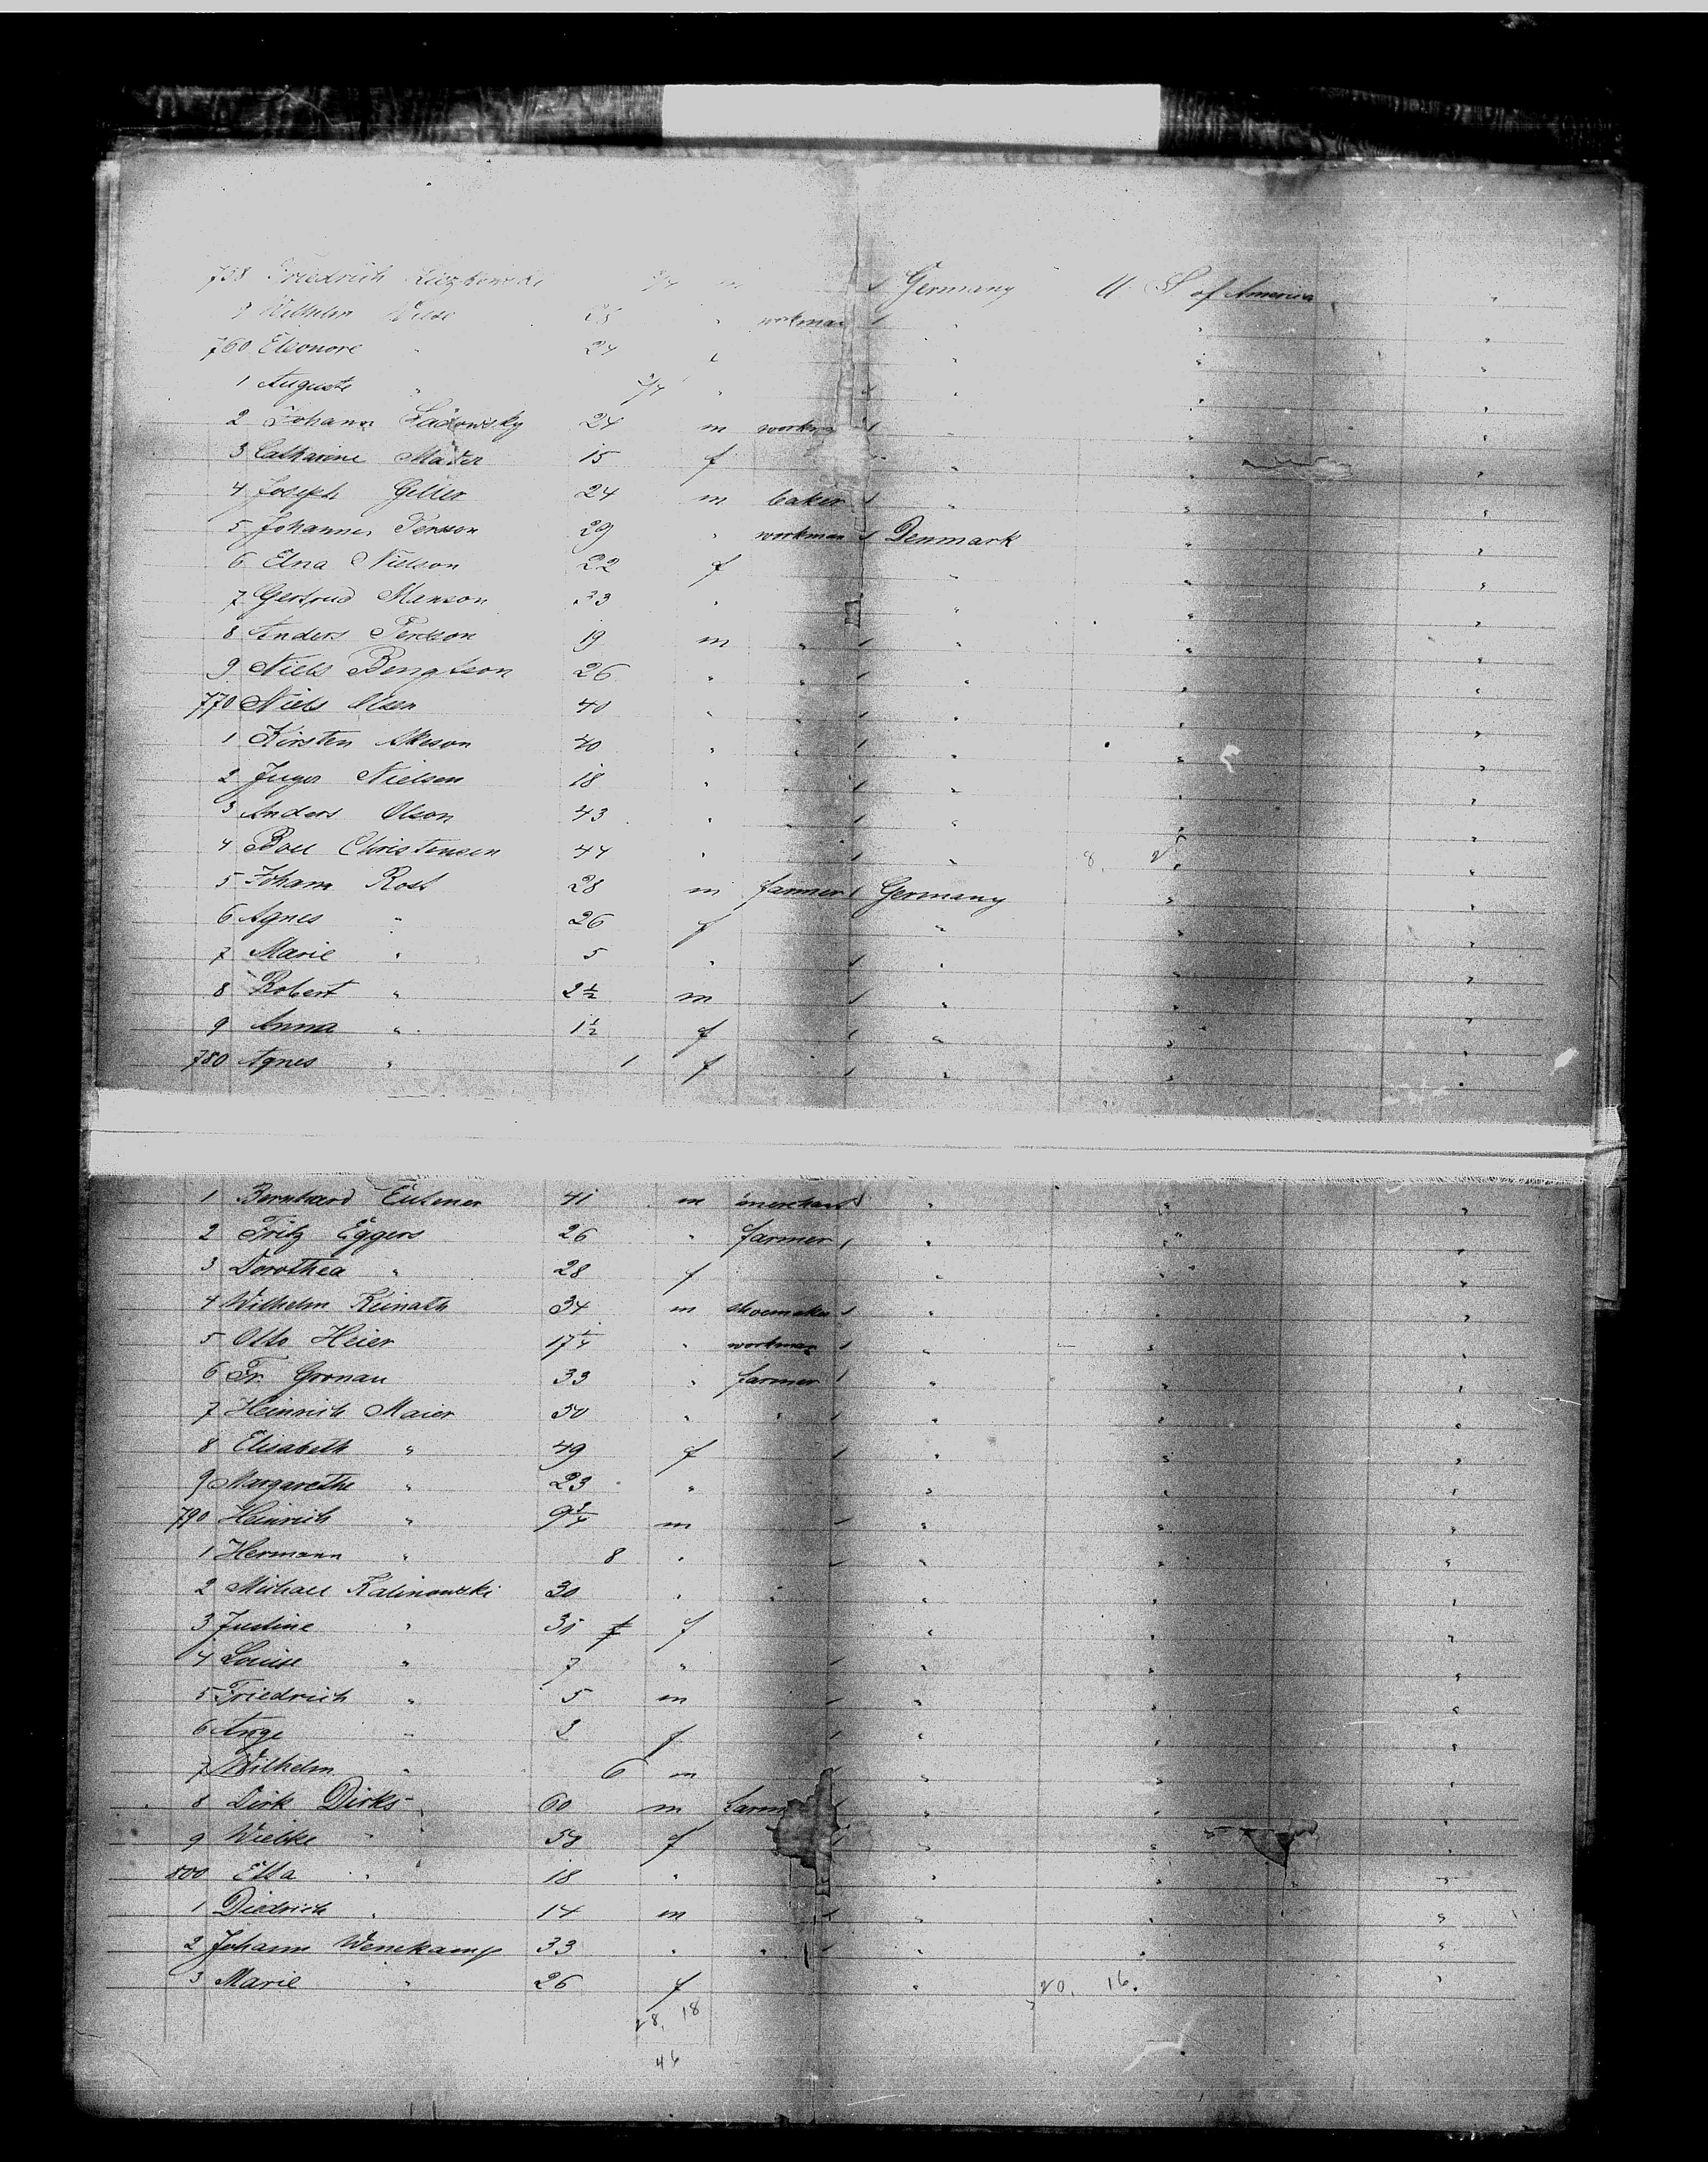 758 Friedrich m Germany U. St of America "
9 Wilhelm Wiese 28 " workman " " "
760 Eleonore " 24 " " " "
1 Auguste " " " " "
2 Johann Sadowsky 24 m workm " " "
3 Catharine Mader 15 f " " "
4 Joseph Geller 24 m baker " " "
5 Johannes Persson 29 " workman Denmark " "
6 Elna Nielson 22 f " " "
7 Gertrud Manson 23 " " " "
8 Anders Persson 19 m " " " "
9 Niels Bengtson 26 " " " " "
770 Niels Olsen 40 " " " " "
1 Kirsten Akeson 40 " " " " "
2 Nielsen 18 " " " "
3 Anders Olson 43 " " " " "
4 Christensen 44 " " 8. " "
5 Johann Rost 28 m farmer Germany " "
6 Agnes " 26 f " " "
7 Marie " 5 " " " "
8 Robert " 2½ m " " "
9 Anna " 1½ f " " "
780 Agnes " 1 f " " "
1 Bernhard 41 m merchant " " "
2 Fritz Eggers 26 " farmer " " "
3 Dorothea " 28 f " " "
4 Wilhelm Reinath 34 m shoemaker " " "
5 Otto Heier 17¼ " workman " " "
6 Fr. Gronau 33 " farmer " " "
7 Heinrich Maier 50 " " " " "
8 Elisabeth " 49 f " " "
9 Margarethe " 23 " " " "
790 Heinrich " 9¾ m " " "
1 Hermann " 8 " " " "
2 Michael Kalinowski 30 " " " " "
3 Justine " 31 f " " "
4 Louise " 7 " " " "
5 Friedrich " 5 m " " "
6 " 3 f " " "
7 Wilhelm " 6 m " " "
8 Dirk Dirks 60 m farm " " "
9 Wiebke " 58 f " " "
800 Etta " 18 " " " "
1 Diedrich " 14 m " " "
2 Johann Wenekamp 33 " " " " "
3 Marie " 26 f " 20. 16. "
28, 18
46